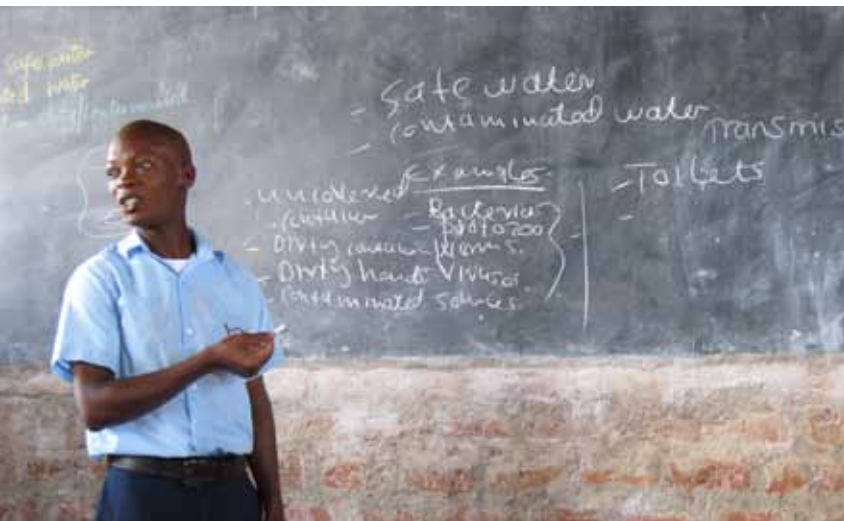 safe water
water
- Safe water
- contaminated water
Transmis
Examples
- Toilets
-
. uncovered
container
- Bacteria
- protozoa
- Dirty
- Dirty hands
Viruses
- contaminated sources.